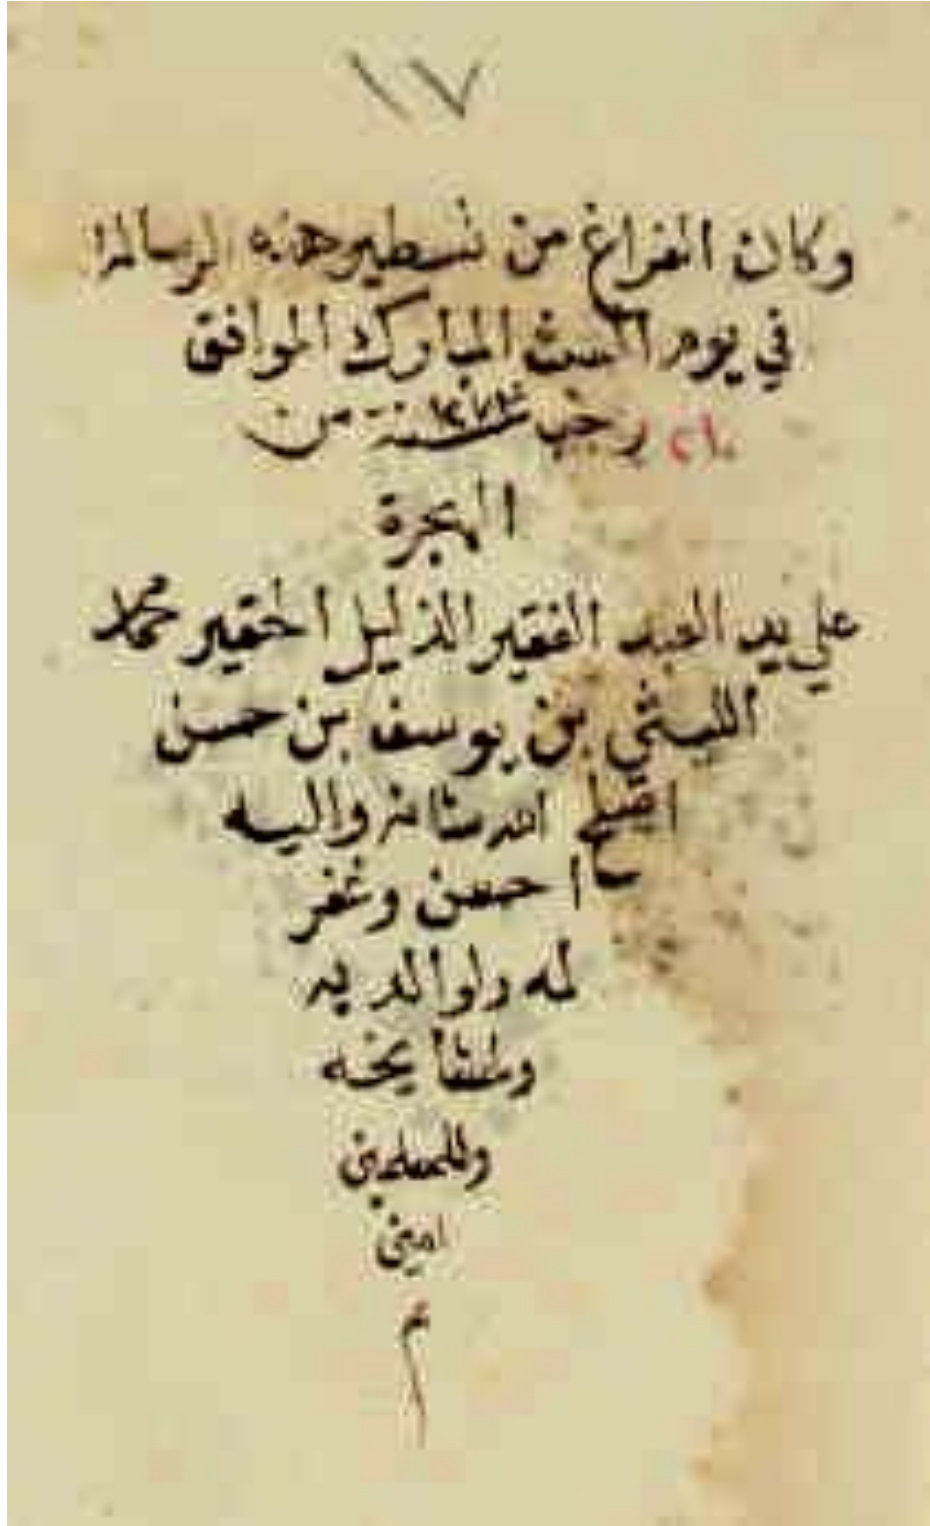 ١٧
وكان الفراغ من تسطير هذه الرسالة
في يوم السبت المبارك الموافق
رجب سنة من
الهجرة
علي يد العبد الفقير الذليل الحقير محمد
الليثي بن يوسف بن حسن
الله شانه واليه
احسن وغفر
له ولوالديه
ولمشايخه
وللمسلمين
امين
م